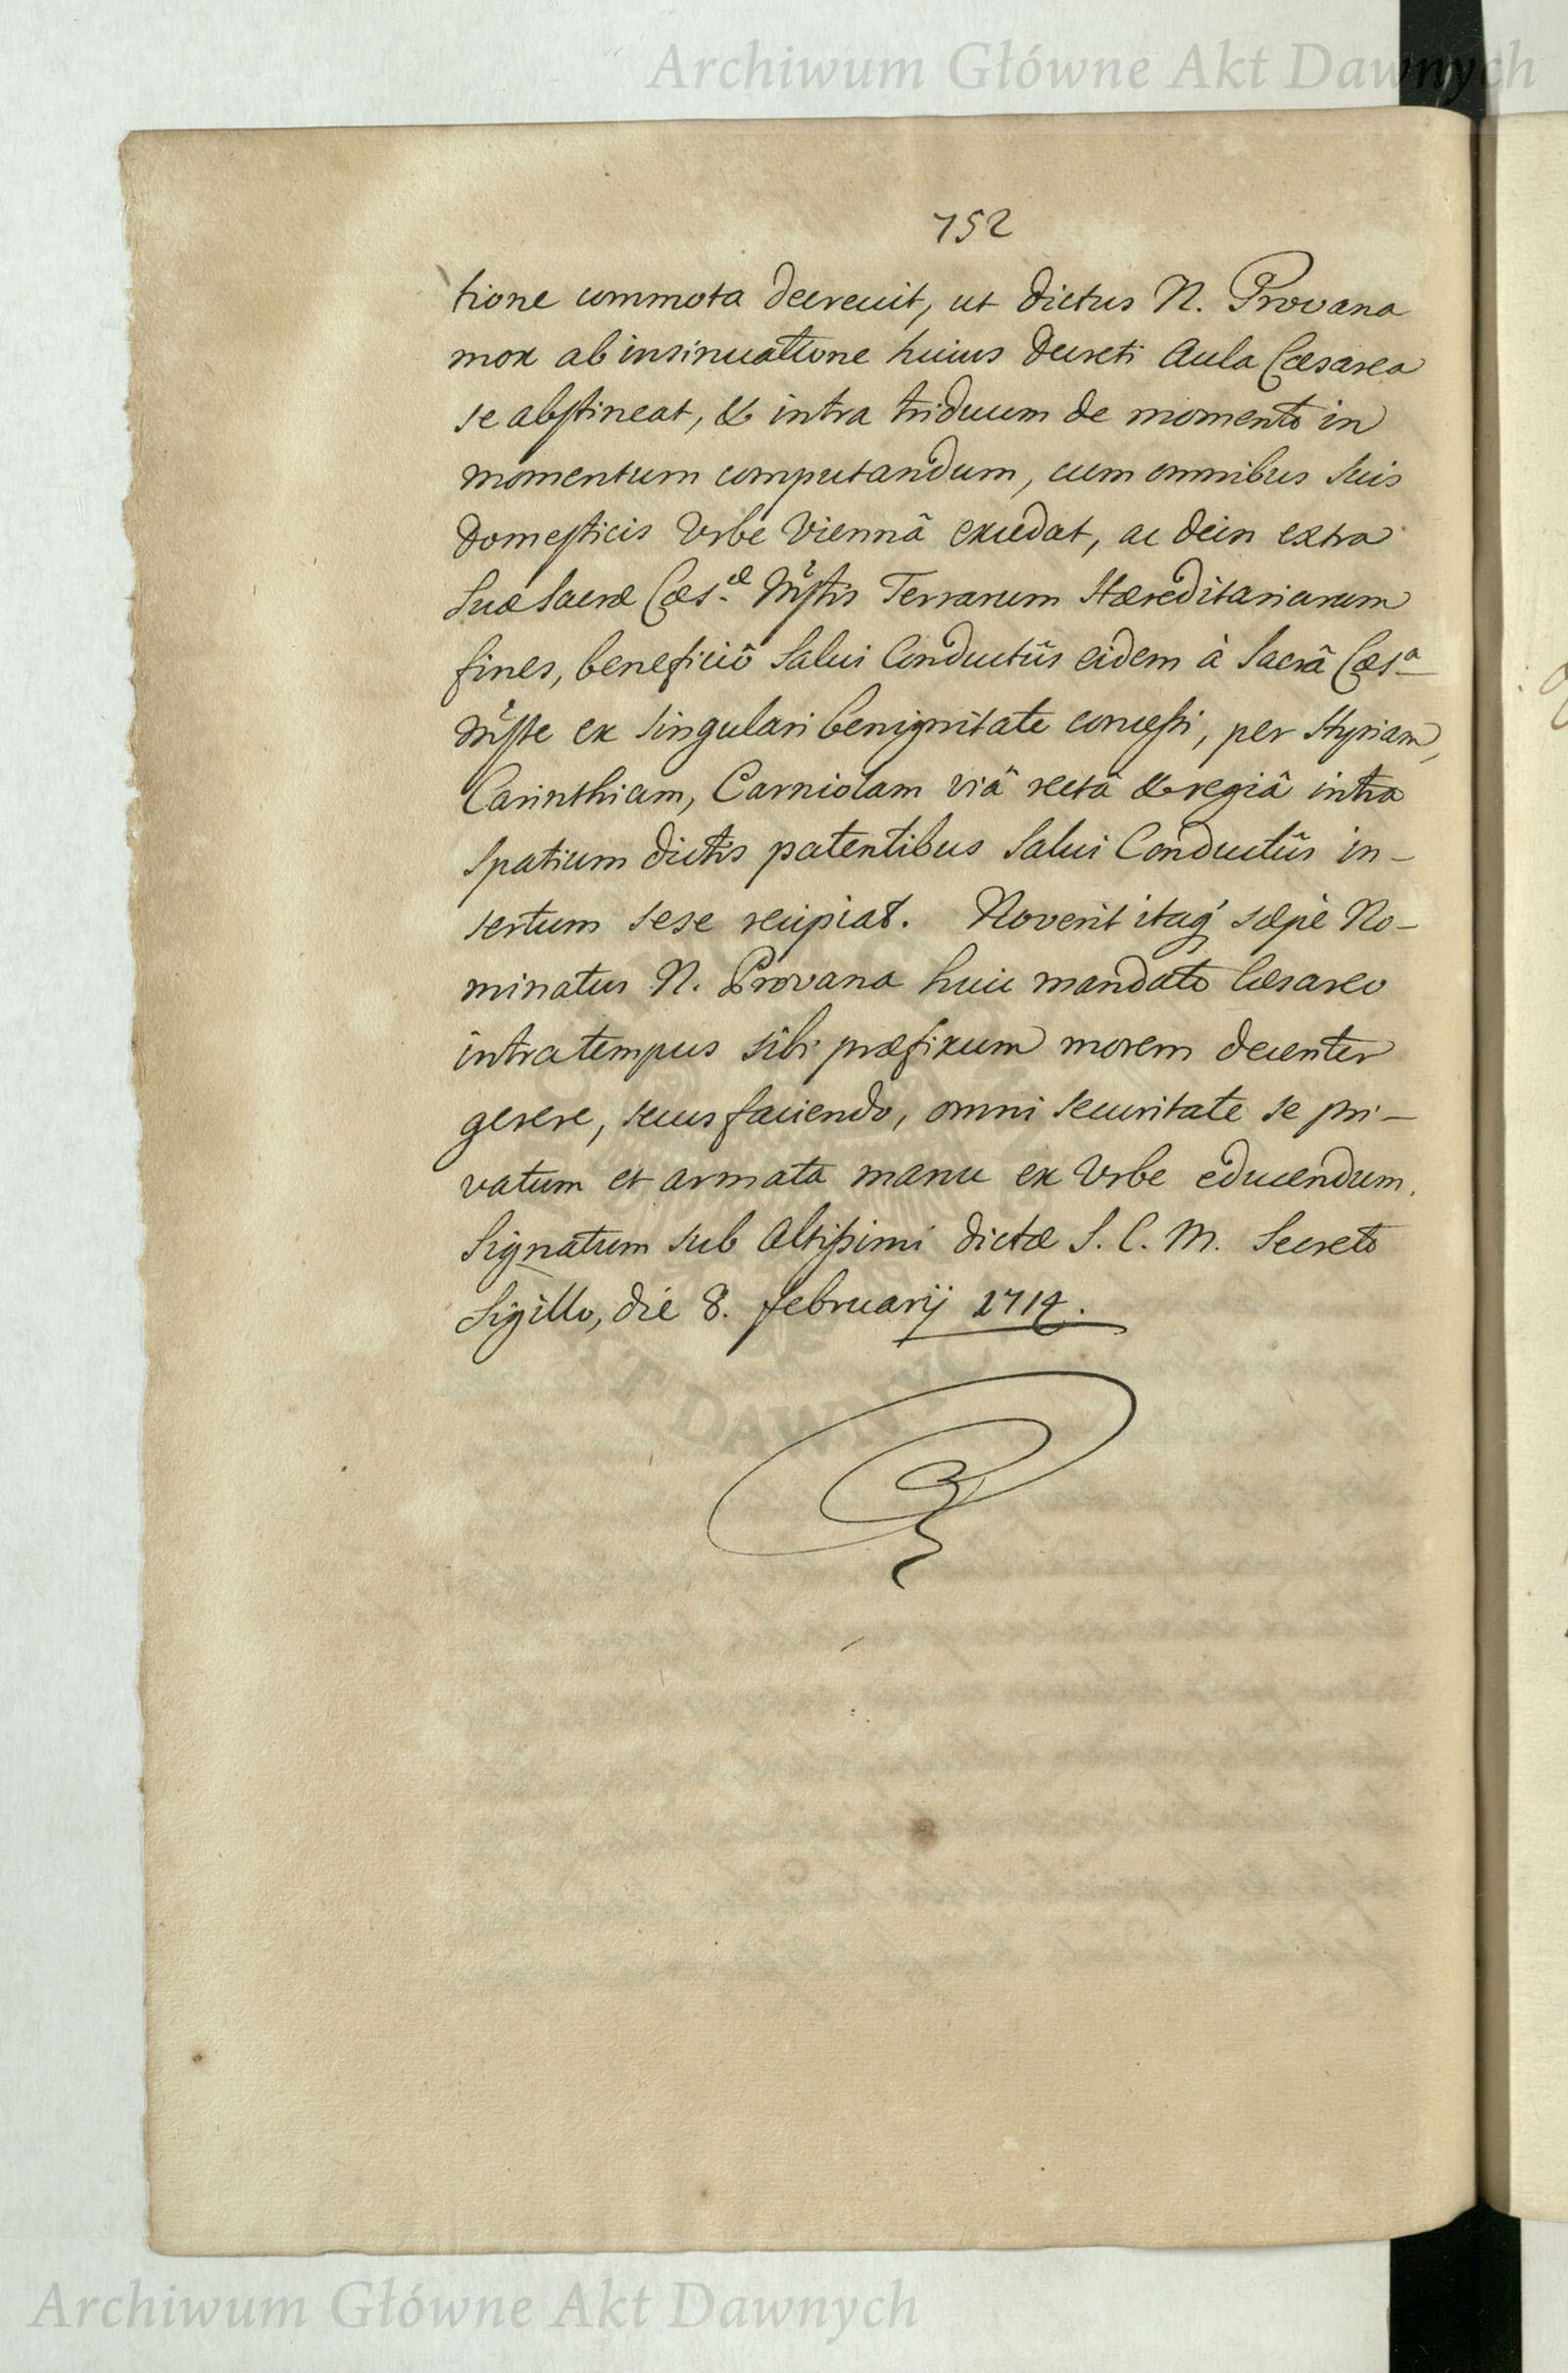 Archiwum Główne Akt Dawnych
752
tione commota decrevit, ut dictus N. Provana
mox ab insinuatione huius decreti Aula Cæsarea
se abstineat, & intra triduum de momento in
momentum computandum, cum omnibus suis
domesticis Urbe Viennâ excedat, ac dein extra
Suæ Sacræ Cæs.æ Mẽstis Terrarum Hæreditariarum
fines, beneficiô Salvi Conductûs eidem à Sacrâ Cæsa
Mẽste ex singulari benignitate concessi, per Styriam,
Carinthiam, Carniolam viâ rectâ & regiâ intra
spatium dictis patentibus Salvi Conductûs in-
sertum sese recipiat. Noverit itaq́ sæpè No-
minatus N. Provana huic mandato Cæsareo
intra tempus sibi præfixum morem decenter
gerere, secus faciendo, omni securitate se pri-
vatum et armata manu ex Urbe educendum.
Signatum sub Altissimi dictæ S. C. M. Secreto
Sigillo, die 8. februarij 1714.
AKT DAWNYCH
Archiwum Główne Akt Dawnych